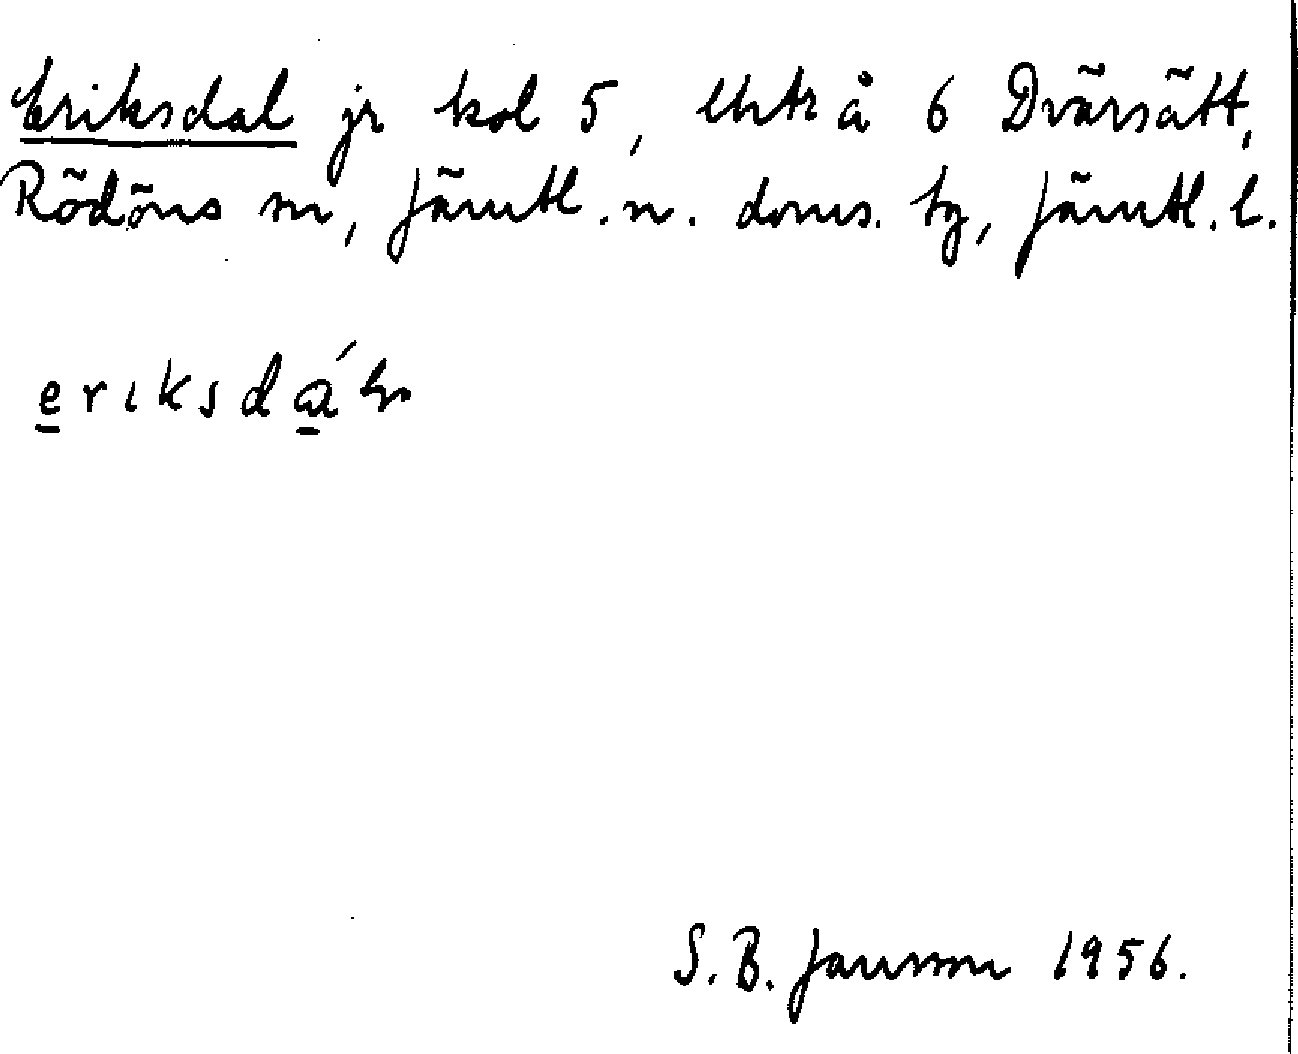 Eriksdal jr kol 5, lhtr å 6 Dvärsätt,
Rödöns sn, Jämtl. n. doms. tg, Jämtl. l.
eriksdál
S. B. Jansson 1956.